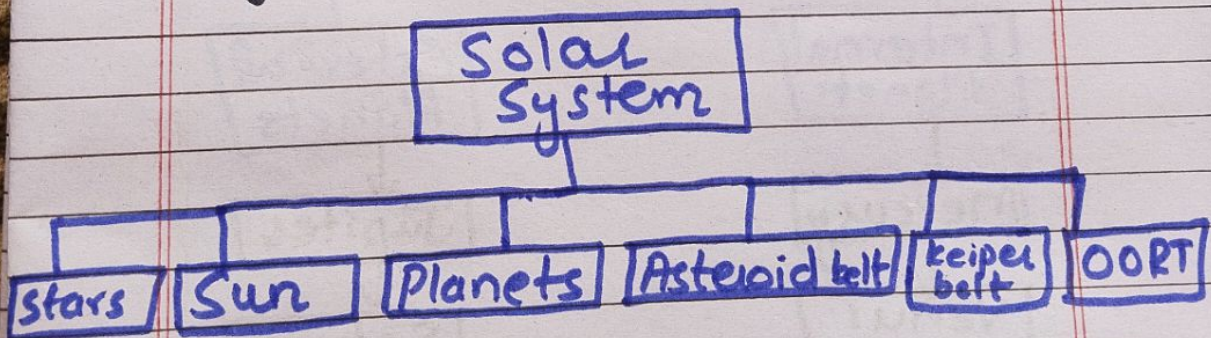 Solar
System
stars
Sun
Planets
Asteroid belt
keiper
belt
OORT